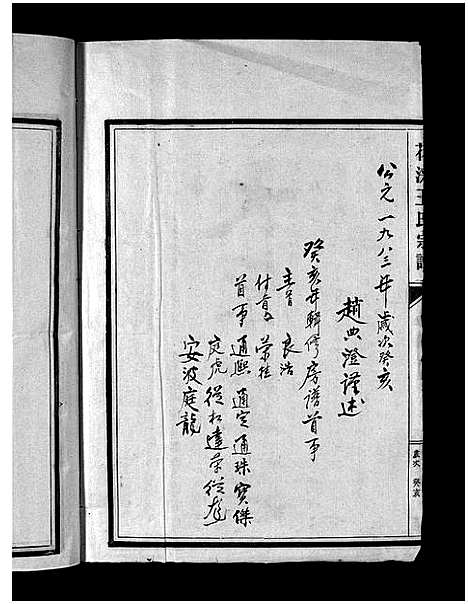 王氏宗譜
歲次 癸亥
公元一九八三年歲次癸亥
趙典澄謹述
癸亥年輯修房譜首事
主首 良浩
付首 荣桂
首事 通熙 通定 通珠 寶傑
庭虎 從和 達荣 從彪
安波 庭龍